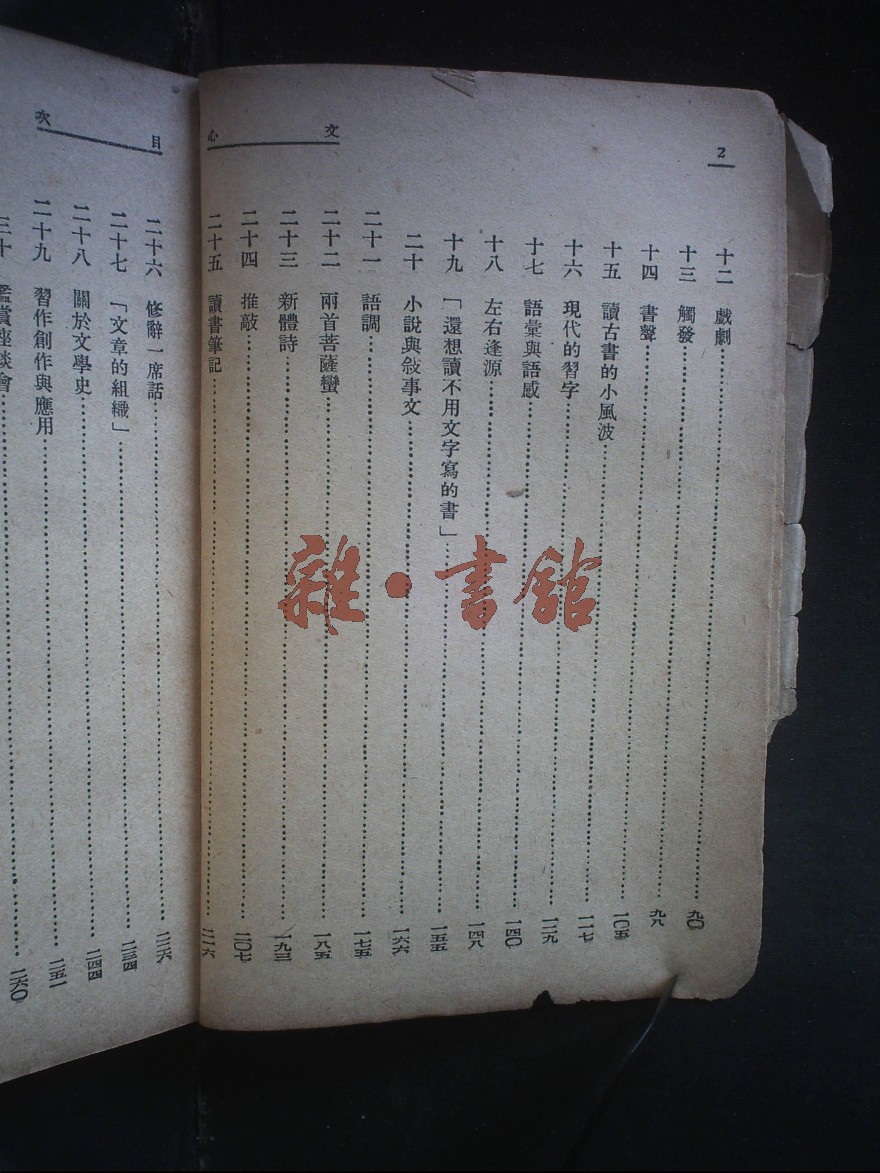 2
文心
十二 戲劇……九〇
十三 觸發……九八
十四 書聲……一〇五
十五 讀古書的小風波……一一七
十六 現代的習字……一二九
十七 語彙與語感……一四〇
十八 左右逢源……一四八
十九 「還想讀不用文字寫的書」……一五五
二十 小說與敍事文……一六六
二十一 語調……一七五
二十二 兩首菩薩蠻……一八五
二十三 新體詩……一九三
二十四 推敲……二〇七
二十五 讀書筆記……二一六
目次
二十六 修辭一席話……二二六
二十七 「文章的組織」……二三四
二十八 關於文學史……二四四
二十九 習作創作與應用……二五一
三十 鑑賞座談會……二六〇
雜·書館